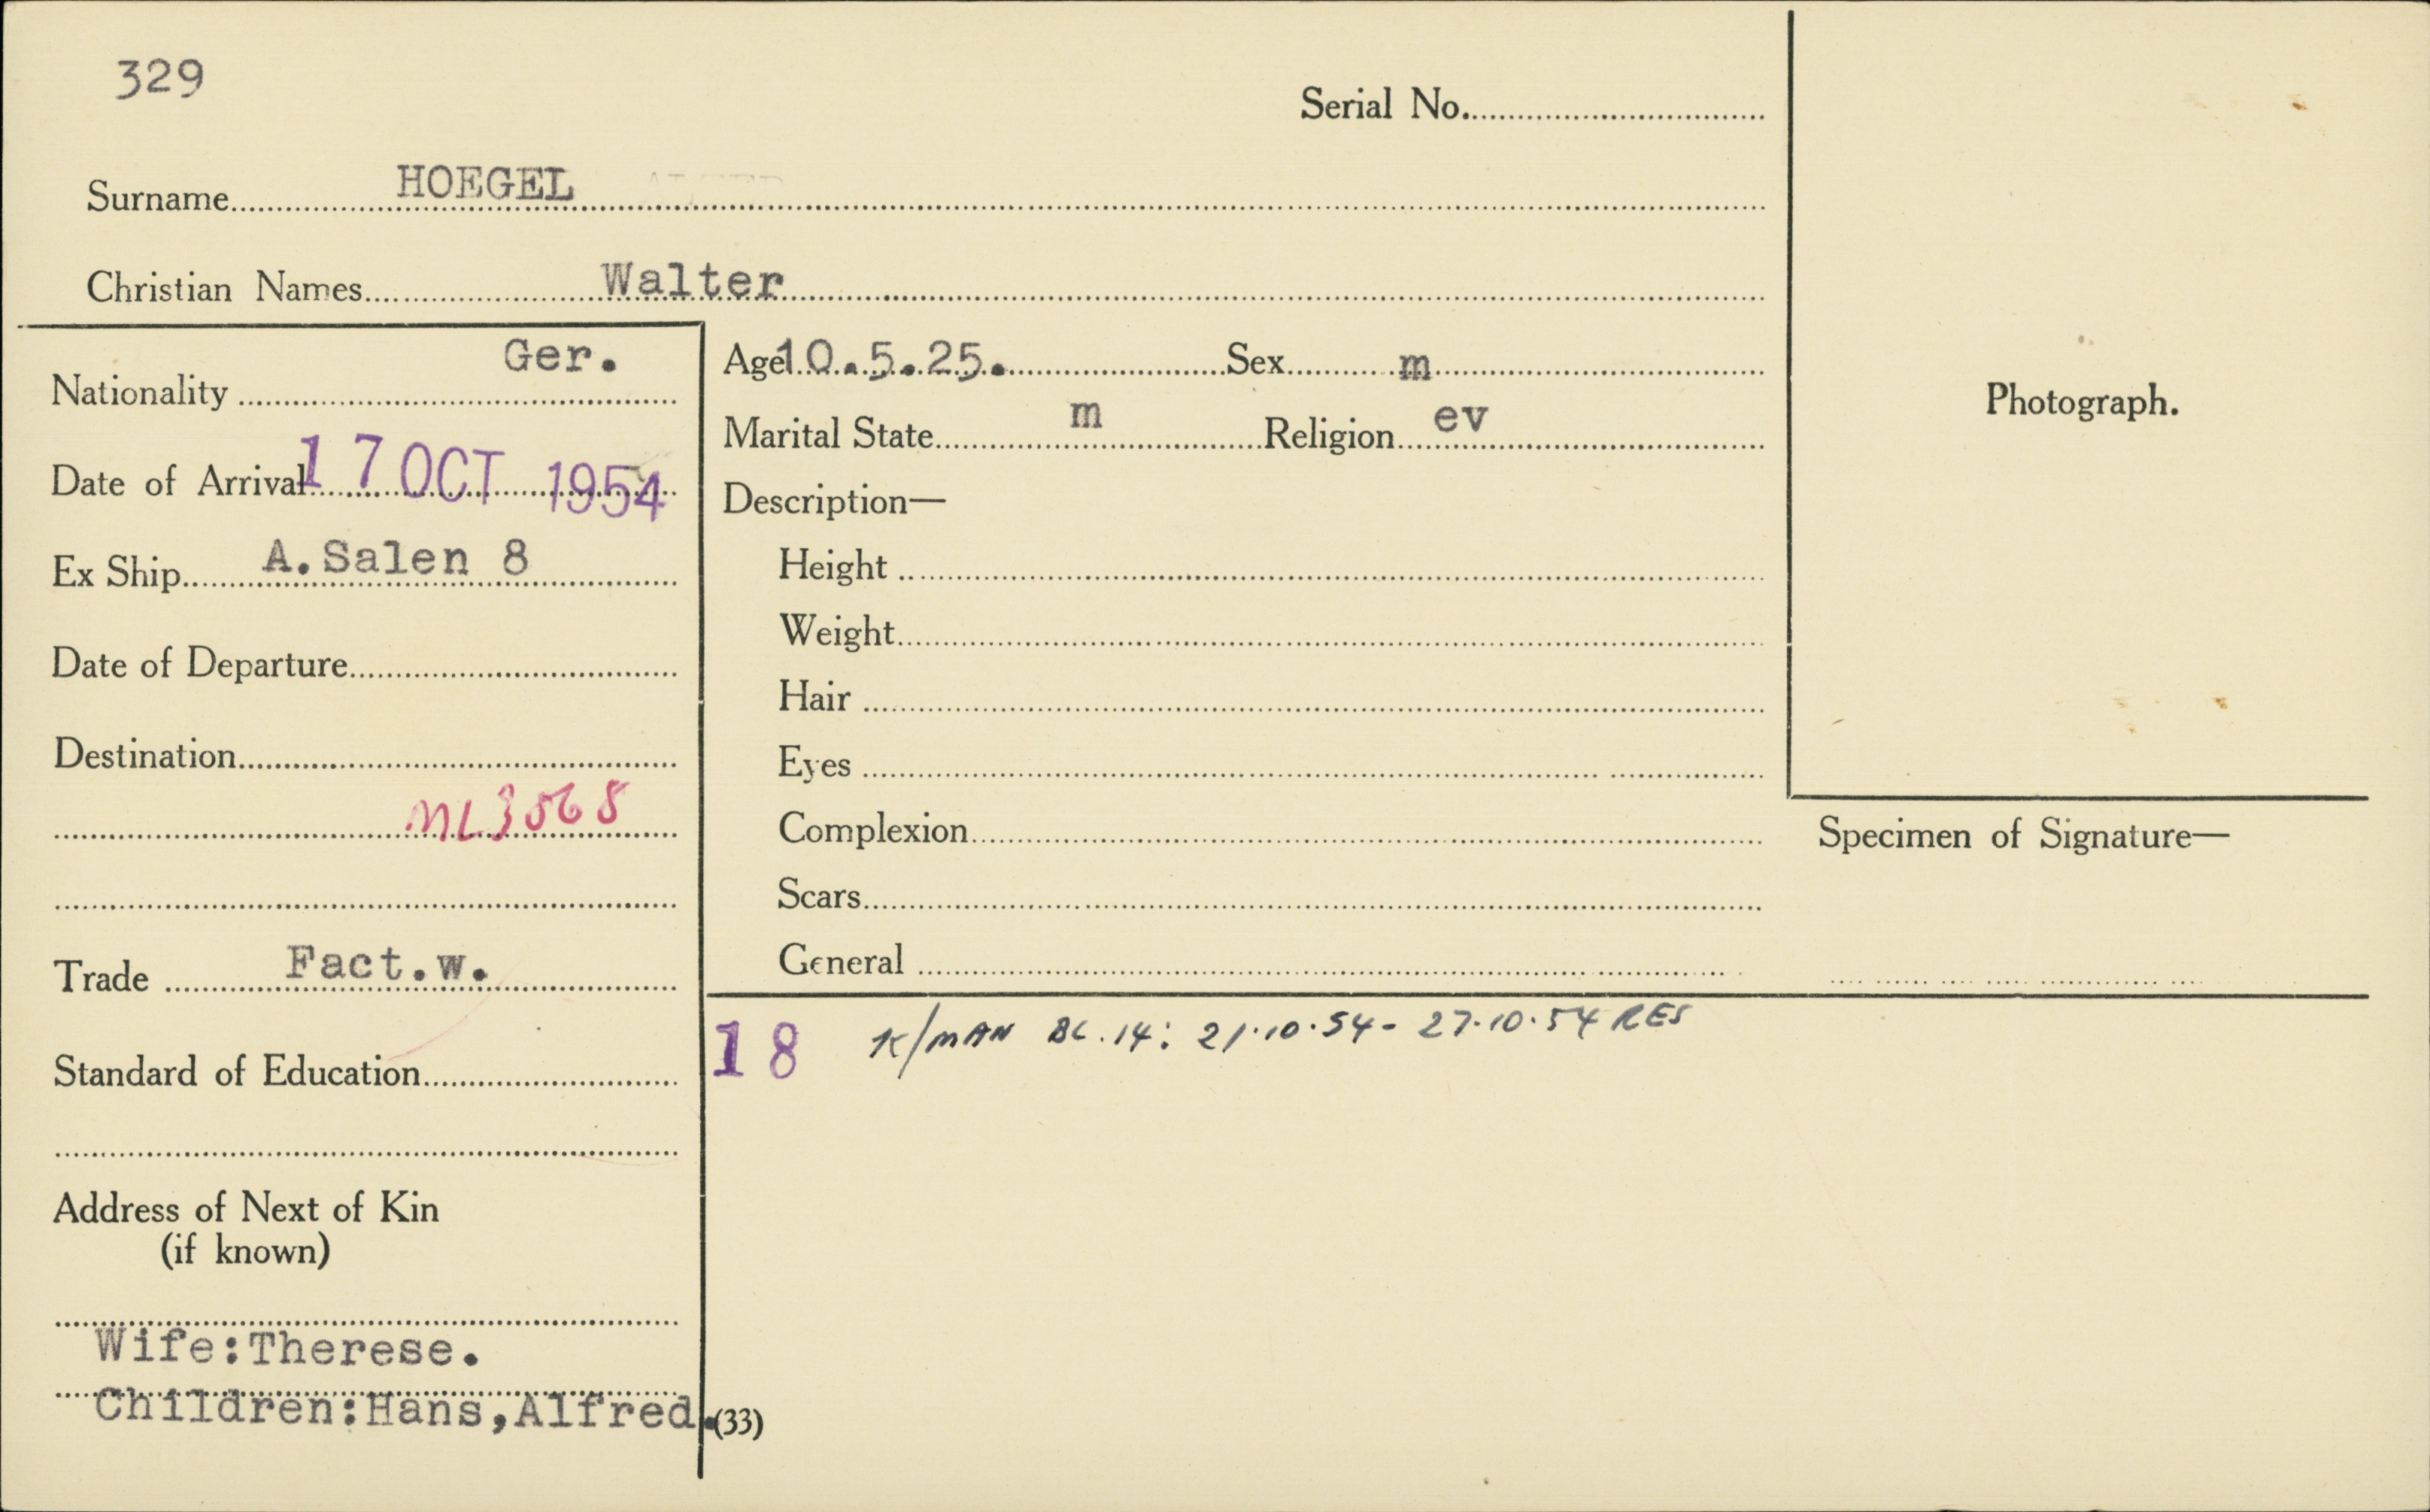 329
Serial No.
Surname HOEGEL
Christian Names Walter
Nationality Ger.
Date of Arrival 17 OCT 1954
Ex Ship A.Salen 8
Date of Departure
Destination
ML3568
Trade Fact.w.
Standard of Education
Address of Next of Kin
(if known)
Wife:Therese.
Children:Hans,Alfred.
(33)
Age 10.5.25. Sex m
Marital State m Religion ev
Description—
Height
Weight
Hair
Eyes
Complexion
Scars
General
18 K/MAN BL.14: 21.10.54- 27.10.54 RES
Photograph.
Specimen of Signature—